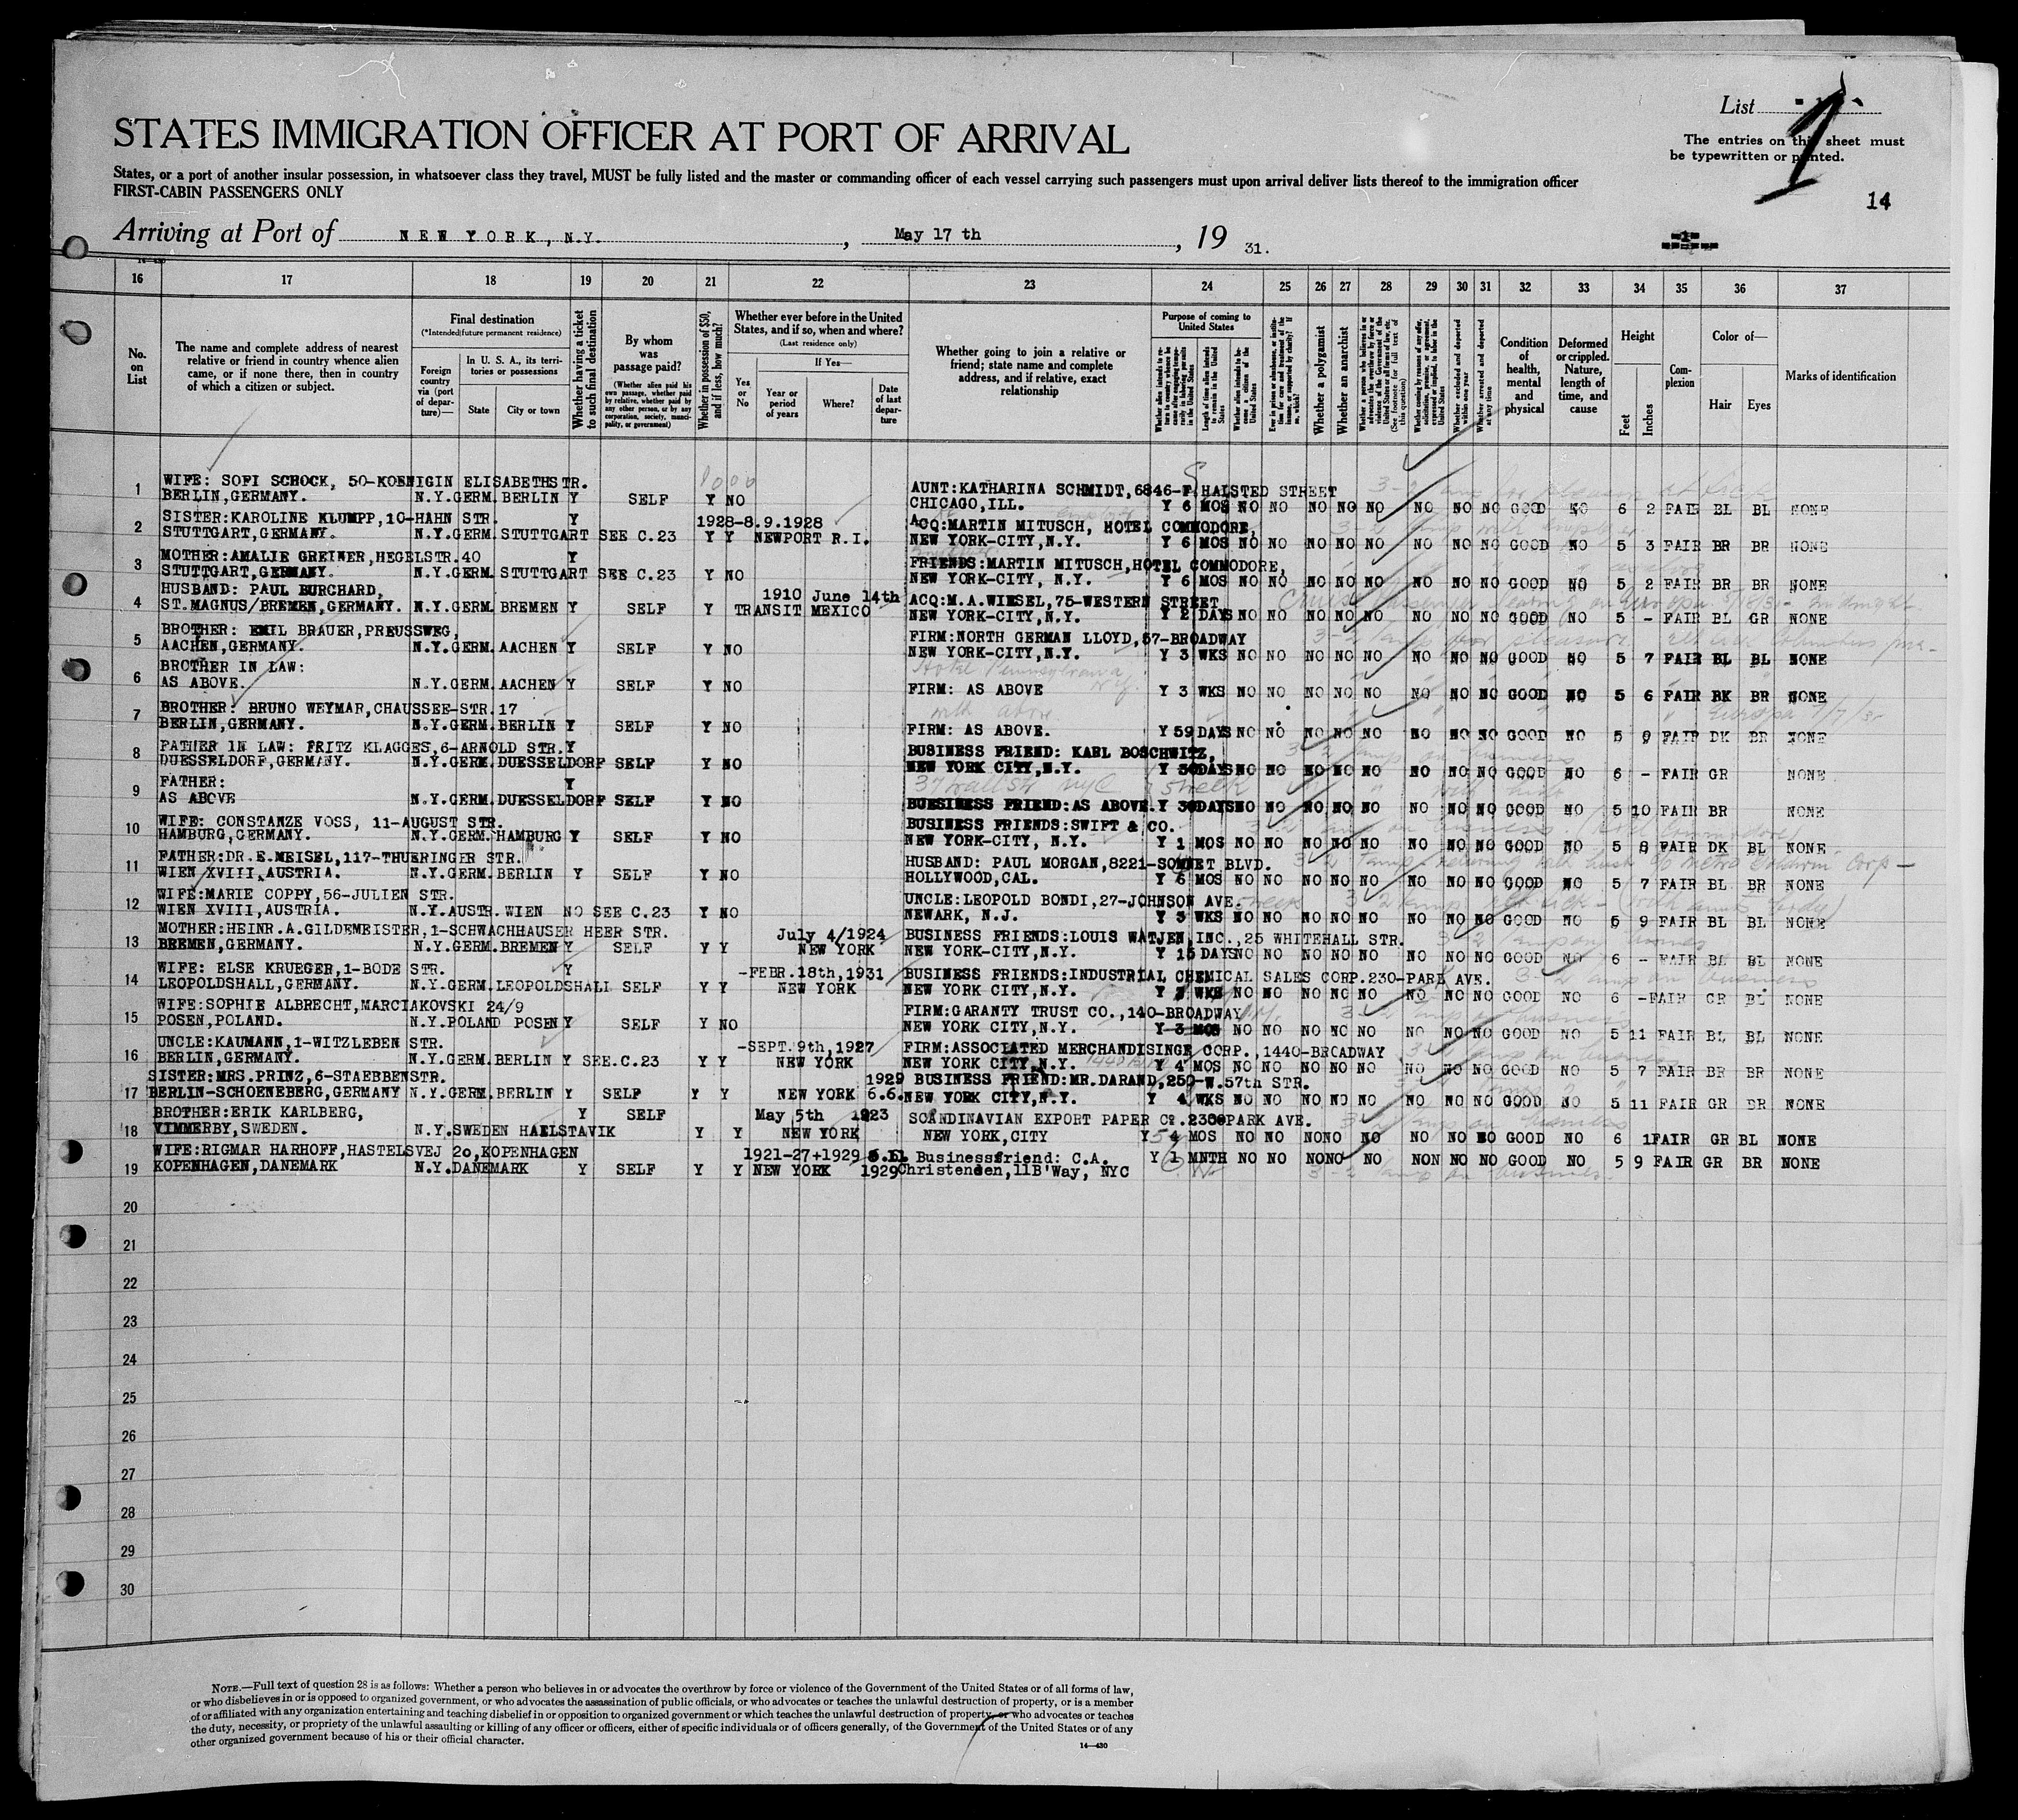 List
The entries on this sheet must
be typewritten or printed.
1
14
STATES IMMIGRATION OFFICER AT PORT OF ARRIVAL
States, or a port of another insular possession, in whatsoever class they travel, MUST be fully listed and the master or commanding officer of each vessel carrying such passengers must upon arrival deliver lists thereof to the immigration officer
FIRST-CABIN PASSENGERS ONLY
Arriving at Port of NEW YORK, N.Y. , May 17 th , 19 31.
16 17 18 19 20 21 22 23 24 25 26 27 28 29 30 31 32 33 34 35 36 37
No. on List
The name and complete address of nearest
relative or friend in country whence alien
came, or if none there, then in country
of which a citizen or subject.
Final destination
(*Intended future permanent residence)
Foreign country via (port of departure)—
In U. S. A., its territories or possessions
State
City or town
Whether having a ticket to such final destination
By whom was passage paid?
(Whether alien paid his own passage, whether paid by relative, whether paid by any other person, or by any corporation, society, municipality, or government)
Whether in possession of $50, and if less, how much?
Whether ever before in the United
States, and if so, when and where?
(Last residence only)
Yes or No
If Yes—
Year or period of years
Where?
Date of last departure
Whether going to join a relative or
friend; state name and complete
address, and if relative, exact
relationship
Purpose of coming to United States
Length of time alien intends to remain in the United States
Whether alien intends to become a citizen of the United States
Whether a polygamist
Whether an anarchist
Whether excluded and deported within one year
Whether arrested and deported at any time
Condition of health, mental and physical
Deformed or crippled. Nature, length of time, and cause
Height
Feet
Inches
Complexion
Color of—
Hair
Eyes
Marks of identification
WIFE: SOFI SCHOCK, 50-KOENIGIN ELISABETHSTR. AUNT:KATHARINA SCHMIDT,6846-F.HALSTED STREET
1 BERLIN,GERMANY. N.Y.GERM.BERLIN Y SELF Y NO CHICAGO,ILL. Y 6 MOS NO NO NO NO NO NO NO NO GOOD NO 6 2 FAIR BL BL NONE
SISTER:KAROLINE KLUMPP,10-HAHN STR. Y 1928-8.9.1928 ACQ:MARTIN MITUSCH, HOTEL COMMODORE,
2 STUTTGART,GERMANY. N.Y.GERM.STUTTGART SEE C.23 Y Y NEWPORT R.I. NEW YORK-CITY,N.Y. Y 6 MOS NO NO NO NO NO NO NO NO GOOD NO 5 3 FAIR BR BR NONE
MOTHER:AMALIE GREINER,HEGELSTR.40 Y FRIENDS:MARTIN MITUSCH,HOTEL COMMODORE,
3 STUTTGART,GERMANY. N.Y.GERM.STUTTGART SEE C.23 Y NO NEW YORK-CITY, N.Y. Y 6 MOS NO NO NO NO NO NO NO NO GOOD NO 5 2 FAIR BR BR NONE
HUSBAND: PAUL BURCHARD, 1910 June 14th ACQ:M.A.WIESEL,75-WESTERN STREET
4 ST.MAGNUS/BREMEN,GERMANY. N.Y.GERM.BREMEN Y SELF Y TRANSIT MEXICO NEW YORK-CITY,N.Y. Y 2 DAYS NO NO NO NO NO NO NO NO GOOD NO 5 - FAIR BL GR NONE
BROTHER: EMIL BRAUER,PREUSSWEG, FIRM:NORTH GERMAN LLOYD,57-BROADWAY
5 AACHEN,GERMANY. N.Y.GERM.AACHEN Y SELF Y NO NEW YORK-CITY,N.Y. Y 3 WKS NO NO NO NO NO NO NO NO GOOD NO 5 7 FAIR BL BL NONE
BROTHER IN LAW: Hotel Pennsylvania
6 AS ABOVE. N.Y.GERM.AACHEN Y SELF Y NO FIRM: AS ABOVE Y 3 WKS NO NO NO NO NO NO NO NO GOOD NO 5 6 FAIR BK BR NONE
BROTHER: BRUNO WEYMAR,CHAUSSEE-STR.17 with above
7 BERLIN,GERMANY. N.Y.GERM.BERLIN Y SELF Y NO FIRM: AS ABOVE. Y 59 DAYS NO NO NO NO NO NO NO NO GOOD NO 5 9 FAIR DK BR NONE
FATHER IN LAW: FRITZ KLAGGES,6-ARNOLD STR.Y BUSINESS FRIEND: KARL BOSCHWITZ,
8 DUESSELDORF,GERMANY. N.Y.GERM.DUESSELDORF SELF Y NO NEW YORK CITY,N.Y. Y 30DAYS NO NO NO NO NO NO NO NO GOOD NO 6 - FAIR GR NONE
FATHER: Y 37 Wall St NYC
9 AS ABOVE N.Y.GERM.DUESSELDORF SELF Y NO BUESINESS FRIEND:AS ABOVE. Y 30DAYSNO NO NO NO NO NO NO NO GOOD NO 5 10 FAIR BR NONE
WIFE: CONSTANZE VOSS, 11-AUGUST STR. BUSINESS FRIENDS:SWIFT & CO.
10 HAMBURG,GERMANY. N.Y.GERM.HAMBURG Y SELF Y NO NEW YORK-CITY, N.Y. Y 1 MOS NO NO NO NO NO NO NO NO GOOD NO 5 8 FAIR DK BL NONE
FATHER:DR.E.MEISEL,117-THUERINGER STR. HUSBAND: PAUL MORGAN,8221-SUNSET BLVD.
11 WIEN XVIII,AUSTRIA. N.Y.GERM.BERLIN Y SELF Y NO HOLLYWOOD,CAL. Y 6 MOS NO NO NO NO NO NO NO NO GOOD NO 5 7 FAIR BL BR NONE
WIFE:MARIE COPPY,56-JULIEN STR. UNCLE:LEOPOLD BONDI,27-JOHNSON AVE.
12 WIEN XVIII,AUSTRIA. N.Y.AUSTR.WIEN NO SEE C.23 Y NO NEWARK, N.J. Y 3 WKS NO NO NO NO NO NO NO NO GOOD NO 5 9 FAIR BL BL NONE
MOTHER:HEINR.A.GILDEMEISTER,1-SCHWACHHAUSER HEER STR. July 4/1924 BUSINESS FRIENDS:LOUIS WATJEN,INC.,25 WHITEHALL STR.
13 BREMEN,GERMANY. N.Y.GERM.BREMEN Y SELF Y Y NEW YORK NEW YORK-CITY,N.Y. Y 15 DAYSNO NO NO NO NO NO NO NO GOOD NO 6 - FAIR BL BL NONE
WIFE: ELSE KRUEGER,1-BODE STR. Y -FEBR.18th,1931 BUSINESS FRIENDS:INDUSTRIAL CHEMICAL SALES CORP.230-PARK AVE.
14 LEOPOLDSHALL,GERMANY. N.Y.GERM.LEOPOLDSHALL SELF Y Y NEW YORK NEW YORK CITY,N.Y. Y WKS NO NO NO NO NO NO NO NO GOOD NO 6 -FAIR GR BL NONE
WIFE:SOPHIE ALBRECHT,MARCIAKOVSKI 24/9 FIRM:GARANTY TRUST CO.,140-BROADWAY
15 POSEN,POLAND. N.Y.POLAND POSEN Y SELF Y NO NEW YORK CITY,N.Y. Y 3 MOS NO NO NO NO NO NO NO NO GOOD NO 5 11 FAIR BL BL NONE
UNCLE:KAUMANN,1-WITZLEBEN STR. -SEPT.9th,1927 FIRM:ASSOCIATED MERCHANDISINGE CORP.,1440-BROADWAY
16 BERLIN,GERMANY. N.Y.GERM.BERLIN Y SEE.C.23 Y Y NEW YORK NEW YORK CITY,N.Y. Y 4 MOS NO NO NO NO NO NO NO NO GOOD NO 5 7 FAIR BR BR NONE
SISTER:MRS.PRINZ,6-STAEBBENSTR. 1929 BUSINESS FRIEND:MR.DARAND,250-W.57th STR.
17 BERLIN-SCHOENEBERG,GERMANY N.Y.GERM.BERLIN Y SELF Y Y NEW YORK 6.6. NEW YORK CITY,N.Y. Y 4 WKS NO NO NO NO NO NO NO NO GOOD NO 5 11 FAIR GR BR NONE
BROTHER:ERIK KARLBERG, Y SELF May 5th 1923 SCANDINAVIAN EXPORT PAPER Co.2300PARK AVE.
18 VIMMERBY,SWEDEN. N.Y.SWEDEN HAELSTAVIK Y Y NEW YORK NEW YORK,CITY Y 4 MOS NO NO NONO NO NO NO NO GOOD NO 6 1FAIR GR BL NONE
WIFE:RIGMAR HARHOFF,HASTELSVEJ 2o,KOPENHAGEN 1921-27+1929 Businessfriend: C.A.
19 KOPENHAGEN,DANEMARK N.Y.DANEMARK Y SELF Y Y NEW YORK 1929 Christenden,11B'Way, NYC Y 1 MNTH NO NO NONO NO NON NO NO GOOD NO 5 9 FAIR GR BR NONE
20
21
22
23
24
25
26
27
28
29
30
NOTE.—Full text of question 28 is as follows: Whether a person who believes in or advocates the overthrow by force or violence of the Government of the United States or of all forms of law,
or who disbelieves in or is opposed to organized government, or who advocates the assassination of public officials, or who advocates or teaches the unlawful destruction of property, or is a member
of or affiliated with any organization entertaining and teaching disbelief in or opposition to organized government or which teaches the unlawful destruction of property, or who advocates or teaches
the duty, necessity, or propriety of the unlawful assaulting or killing of any officer or officers, either of specific individuals or of officers generally, of the Government of the United States or of any
other organized government because of his or their official character.
14—430